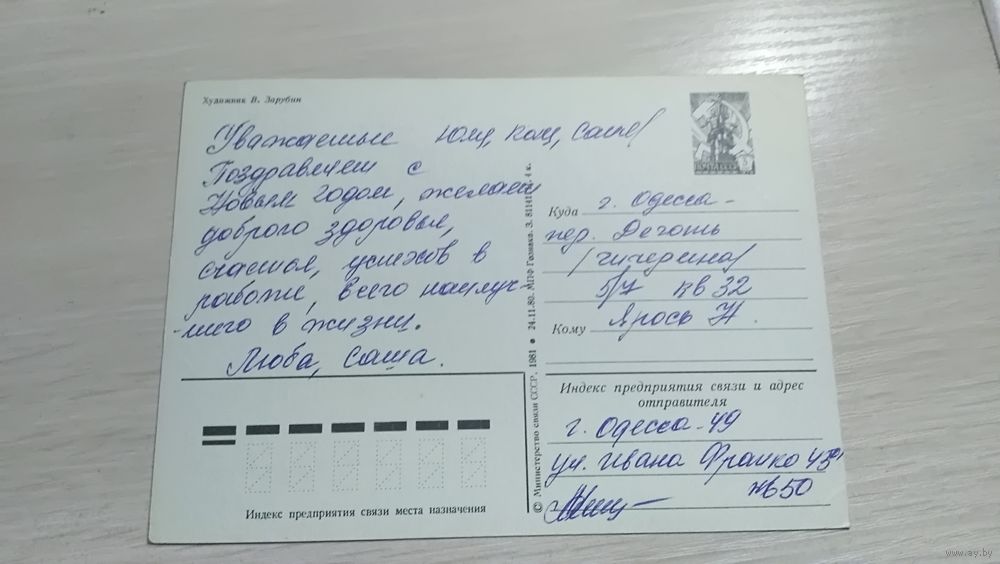 Художник В. Зарубин
Уважаемые Юля, Коля, Саша!
Поздравляем с
Новым годом, желаем
доброго здоровья,
счастья, успехов в
работе, всего наилуч-
-шего в жизни.
Люба, Саша.
Куда г. Одесса -
пер. Деготь
/Чичерина/
5/7 кв 32
Кому Ярось Н.
Индекс предприятия связи и адрес
отправителя
г. Одесса-49
ул. Ивана Франко
кв 50
Индекс предприятия связи места назначения
© Министерство связи СССР. 1981 ● 24.11.80. МПФ Гознака. З. 4 к.
www.ay.by